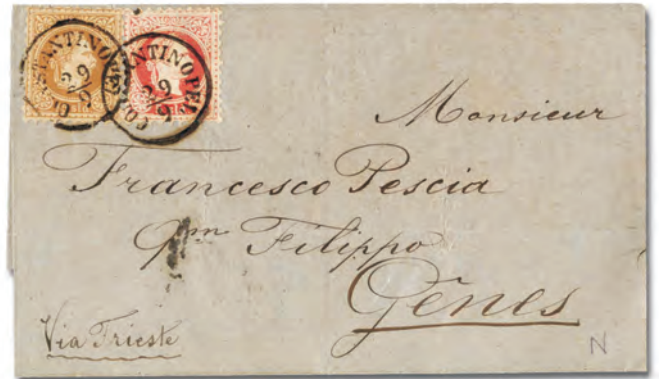 CONSTANTINOPEL
29
9
CONSTANTINOPEL
29
9
Monsieur
Francesco Pescia
qm Filippo
Gênes
Via Trieste
N